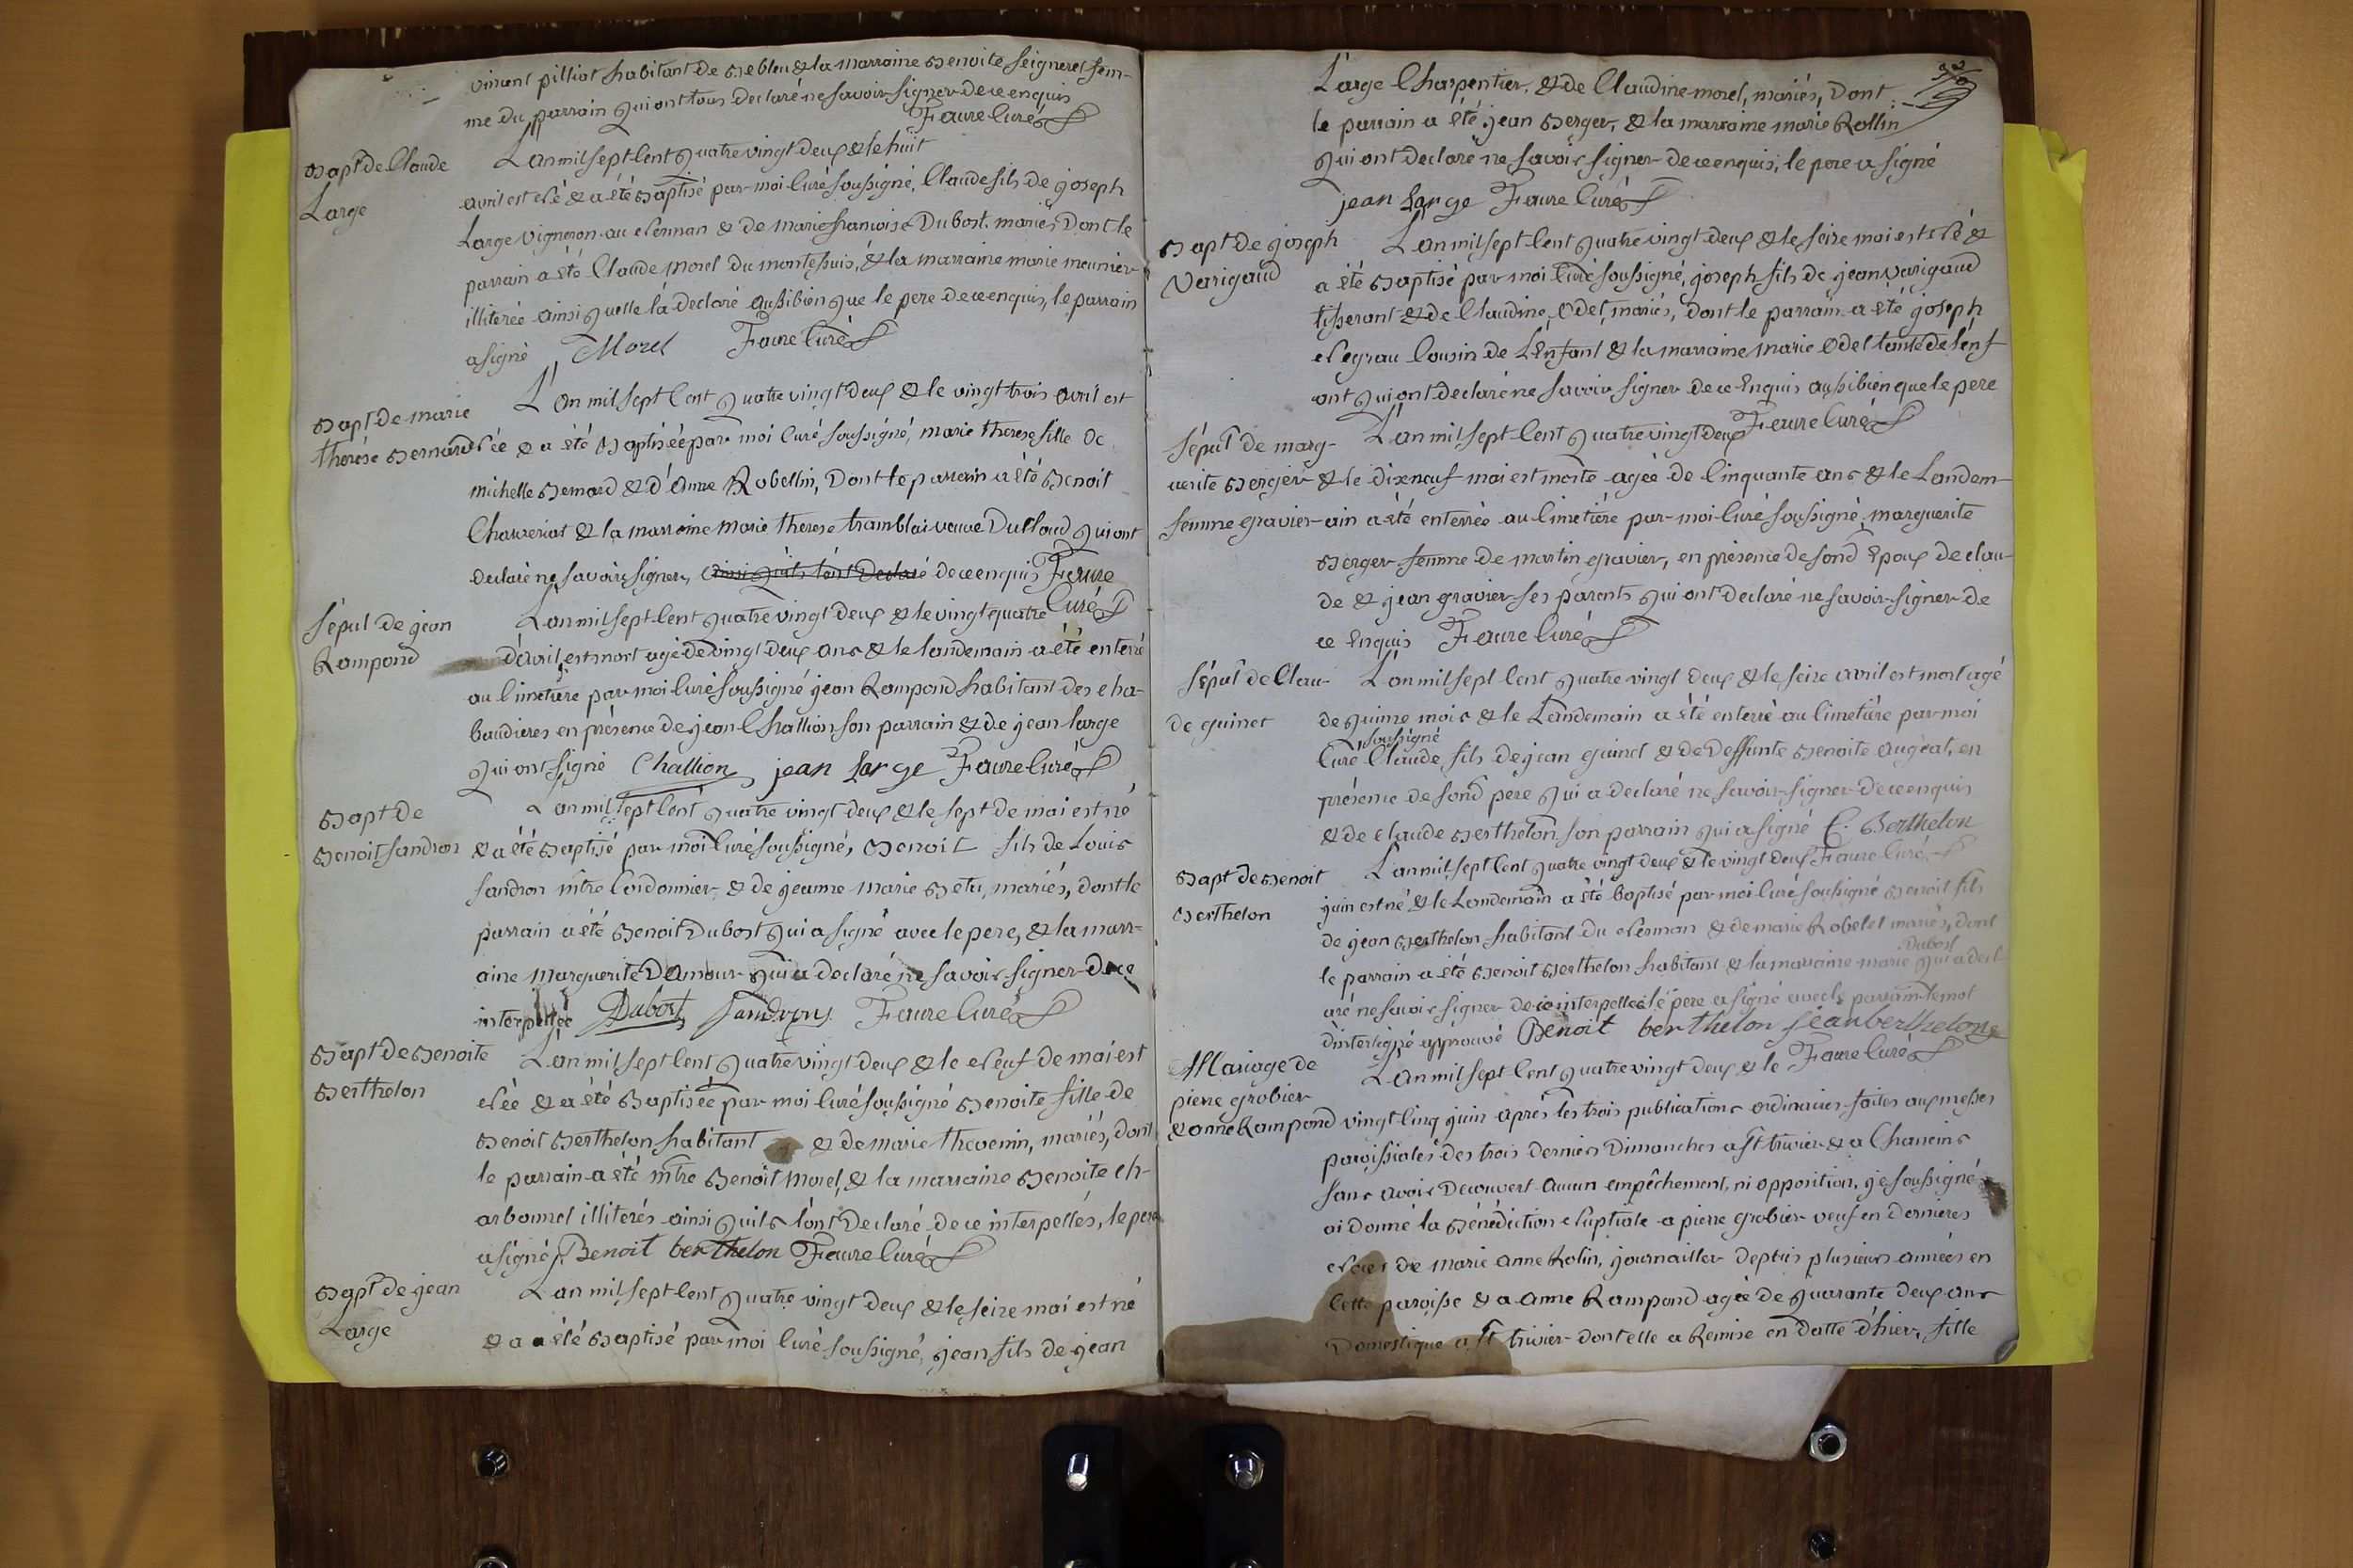 vincent pilliot habitant de Bebleu & la marraine Benoite seigneret fem-
me du parrain qui ont tous declaré ne savoir signer de ce enquis
Faure Curé
Bapt de Claude
Large
L'an mil sept Cent quatre vingt deux & le huit
avril est né & a été Baptisé par moi Curé soussigné, Claude fils de joseph
Large vigneron au Nerman & de marie francoise Dubost, mariés Dont le
parrain a été Claude Morel du montessuis, & la marraine marie meunier
illiterée ainsi quelle la declaré aussi bien que le pere de ce enquis, le parrain
a signé Morel Faure Curé
Bapt de marie
therése Bernard
L'an mil sept Cent quatre vingt deux & le vingt trois avril est
née & a été Baptisée par moi Curé soussigné, marie therese fille de
michelle Bernard & d'Anne Robellin, Dont le parrain a été Benoit
Chaverias & la marraine marie therese tramblai veuve Duclaud qui ont
declaré ne savoir signer, ainsi quils l'ont declaré de ce enquis Faure
Curé
Sépul de jean
Rampond
L'an mil sept Cent quatre vingt deux & le vingt quatre
d'avril est mort agé de vingt deux ans & le landemain a été enterré
au Cimetière par moi Curé soussigné jean Rampond habitant des cha-
baudieres en présence de jean Challion son parrain & de jean large
qui ont signé Challion jean Large Faure Curé
Bapt de
Benoit sandron
L'an mil sept Cent quatre vingt deux & le sept de mai est né
& a été Baptisé par moi Curé soussigné, Benoit fils de Louis
sandron mtre Cordonnier & de jeanne marie Betu, mariés, dont le
parrain a été Benoit Dubost qui a signé avec le pere, & la marr-
aine marguerite Damour qui a declaré ne savoir signer de ce
interpellée Dubost Sandrons Faure Curé
Bapt de Benoite
Berthelon
L'an mil sept Cent quatre vingt deux & le neuf de mai est
née & a été Baptisée par moi Curé soussigné Benoite fille de
Benoit Berthelon habitant & de marie thevenin, mariés, dont
le parrain a été mtre Benoit Morel, & la marraine Benoite ch-
arbonnel illiterés ainsi quils l'ont declaré de ce interpellés, le pere
a signé Benoit berthelon Faure Curé
Bapt de jean
Large
L'an mil sept Cent quatre vingt deux & le seize mai est né
& a été Baptisé par moi Curé soussigné, jean fils de jean
Large Charpentier, & de Claudine morel, mariés, Dont
le parrain a été jean Berger, & la marraine marie Rollin
qui ont declaré ne savoir signer de ce enquis, le pere a signé
jean Large Faure Curé
Bapt de joseph
Varigaud
L'an mil sept Cent quatre vingt deux & le seize mai est né &
a été Baptisé par moi Curé soussigné, joseph fils de jean varigaud
tisserant & de Claudine Odet, mariés, dont le parrain a été joseph
Negrau Cousin de L'Enfant & la marraine marie Odet tante de l'enf
ant qui ont declaré ne savoir signer de ce Enquis aussi bien que le pere
Faure Curé
Sépul de marg-
uerite Berger
femme gravier
L'an mil sept Cent quatre vingt deux
& le dixneuf mai est morte agée de Cinquante ans & le Landem-
ain a été enterrée au Cimetière par moi Curé soussigné, marguerite
Berger femme de martin gravier, en présence de sond Epoux de clau-
de & jean gravier ses parents qui ont declaré ne savoir signer de
ce Enquis Faure Curé
Sépul de Clau-
de guinet
L'an mil sept Cent quatre vingt deux & le seize avril est mort agé
de quinze mois & le Landemain a été enterré au Cimetière par moi
soussigné
Curé Claude, fils de jean guinet & de Deffunte Benoite augeat, en
présence de sond père qui a declaré ne savoir signer de ce enquis
& de claude Berthelon son parrain qui a signé C. Berthelon
Faure Curé
Bapt de Benoit
Berthelon
L'an mil sept Cent quatre vingt deux & le vingt deux
juin est né & le Landemain a été baptisé par moi Curé soussigné Benoit fils
de jean Berthelon habitant du Nerman & de marie Robelet mariés, dont
Dubost
le parrain a été Benoit Berthelon habitant & la marraine marie qui a decl
aré ne savoir signer de ce interpellée le pere a signé avec le parrain le mot
d'interligné approuvé Benoit berthelon jean berthelon
Faure Curé
Mariage de
pierre grobier
& anne Rampond
L'an mil sept Cent quatre vingt deux & le
vingt Cinq juin après les trois publications ordinaires faites aux messes
paroissiales des trois derniers Dimanches a St trivier & a Chaneins
sans avoir decouvert aucun empêchement, ni opposition, je soussigné
ai donné la Bénédiction Nuptiale a pierre grobier veuf en dernieres
Noces de marie anne Rolin, journailler depuis plusieurs années en
Cette paroisse & a anne Rampond agée de quarante deux ans
Domestique a St trivier dont elle a Remise en datte d'hier, fille